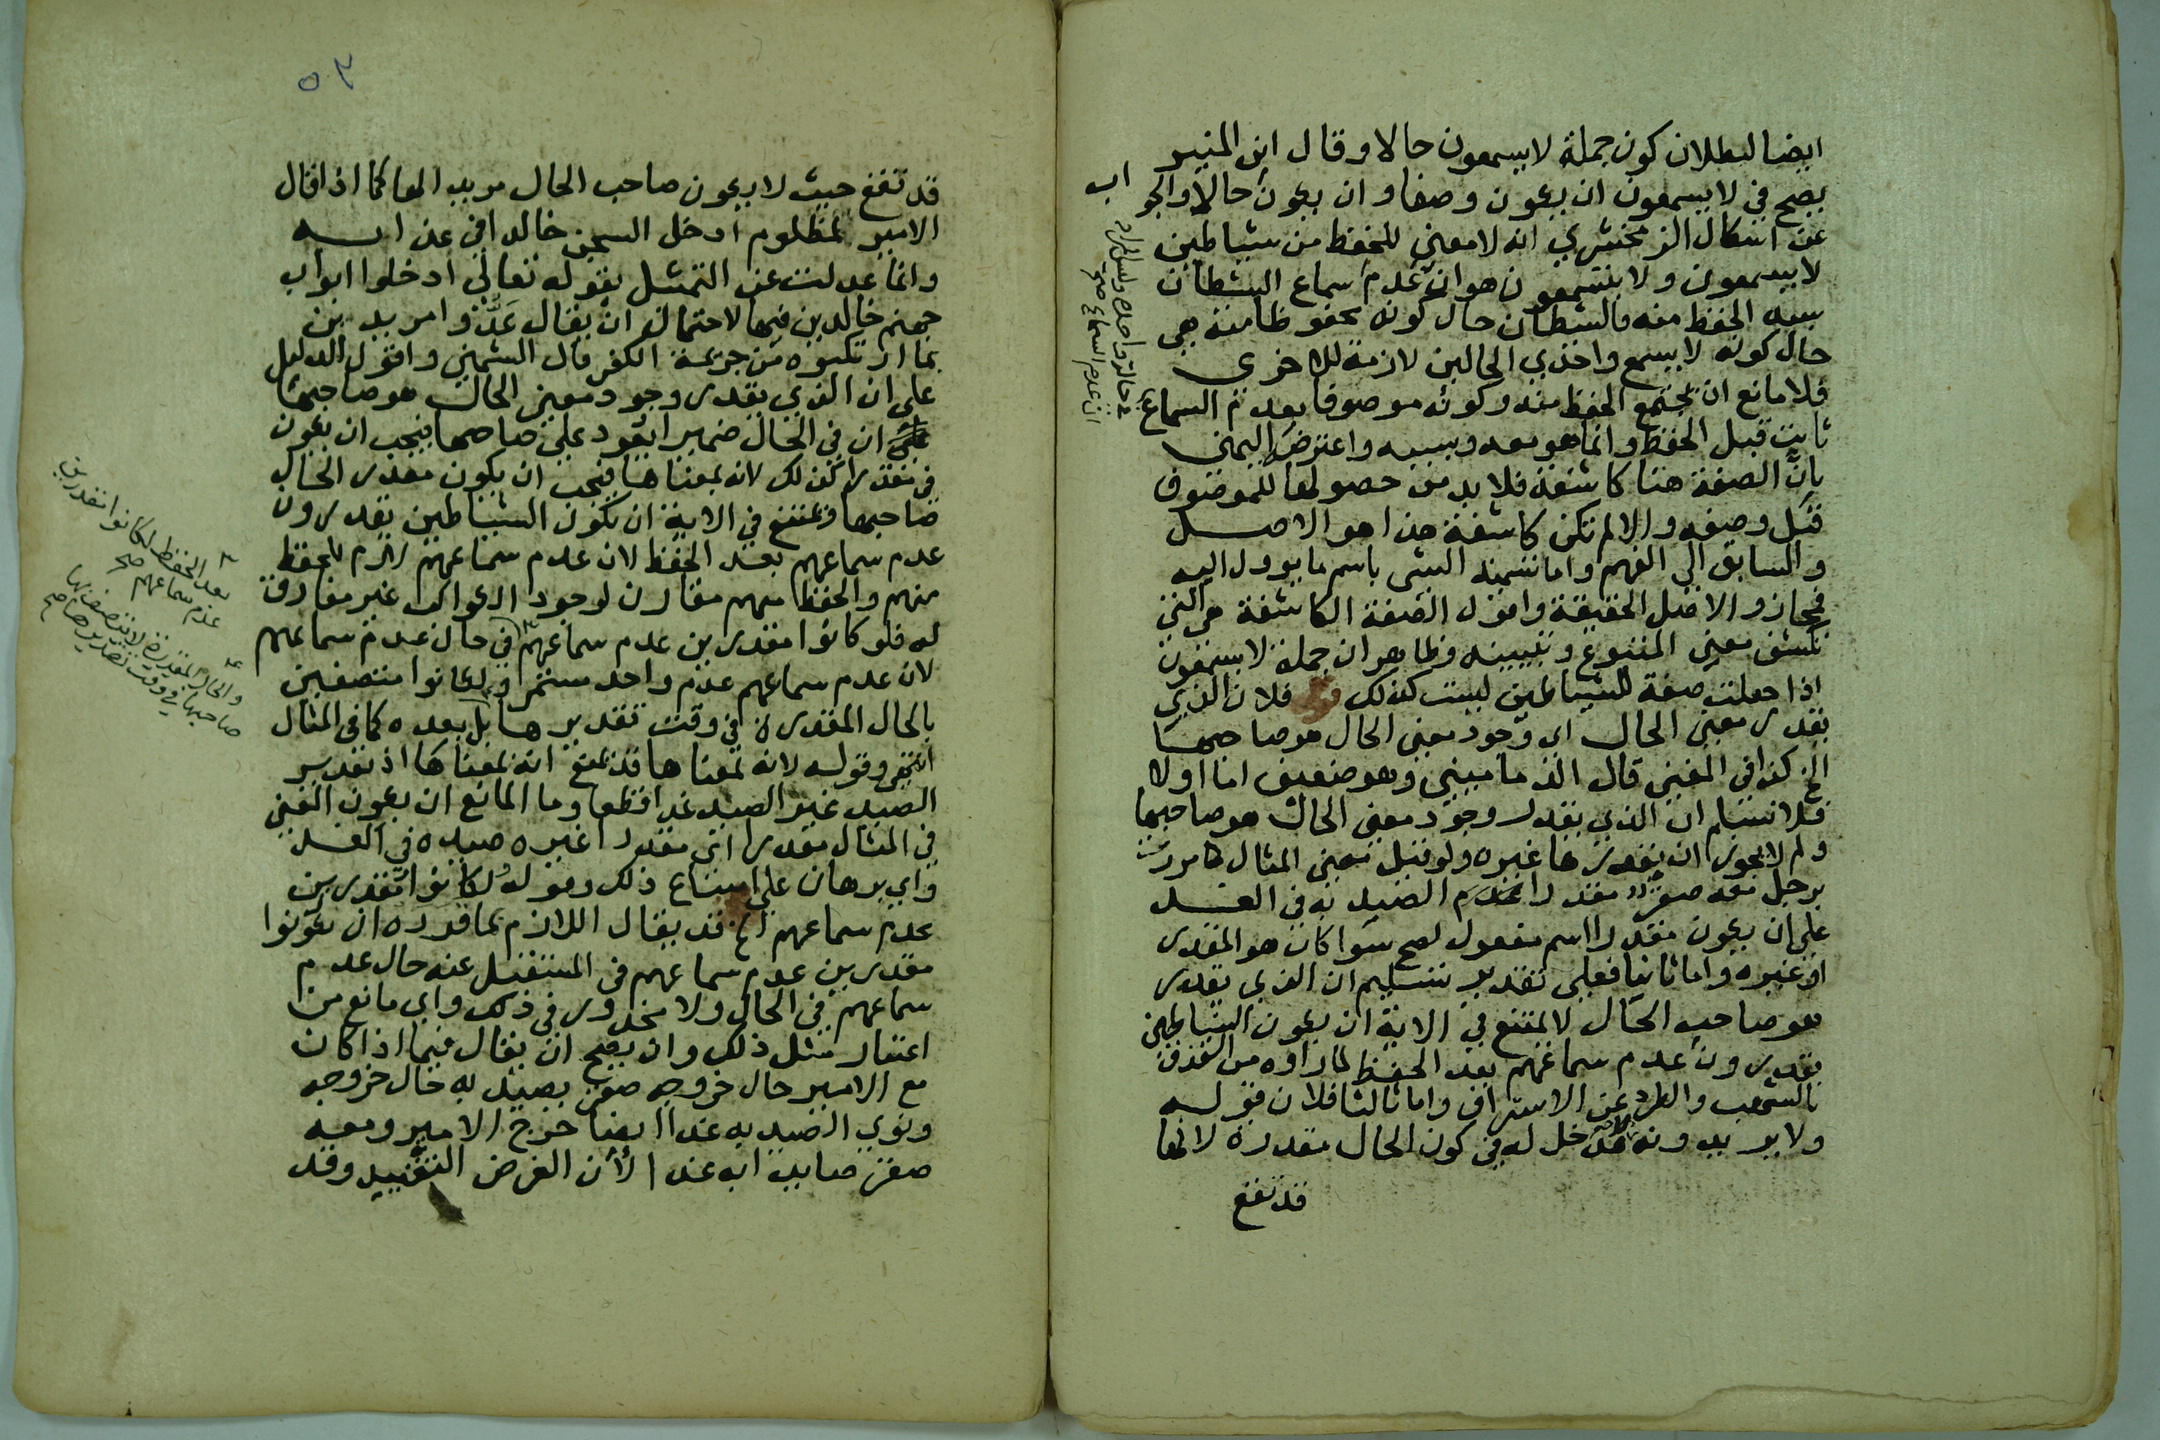 ايضا لبطلان كون جملة لا يسمعون حالا وقال ابن المنير
يصح في لا يسمعون ان يكون وصفا وان يكون حالا والجواب
عن اشكال الزمخشري انه لا معنى للحفظ من شياطين
لا يسمعون ولا يتسمعون هو ان عدم سماع الشيطان
سببه الحفظ منه فالشيطان حال كونه محفوظا منه هي
حال كونه لا يسمع واحدي الحالين لازمة للاخرى
فلا مانع ان يجتمع الحفظ منه وكونه موصوفا بعدم السماع
في حالة واحدة وليس المراد
ان عدم السماع صح
ثابت قبل الحفظ وانما هو معه وبسببه واعترضه اليمني
بان الصفة هنا كاشفة فلا بد من حصولها للموصوف
قبل وصفه والا لم تكن كاشفة هذا هو الاصل
والسابق الى الفهم واما تسمية الشي باسم ما يوول اليه
فمجاز والاصل الحقيقة واقول الصفة الكاشفة هي التي
تكشف معنى المتبوع وتبيينه وظاهر ان جملة لا يسمعون
اذا جعلت صفة للشياطين ليست كذلك فلان الذي
يقدر معنى الحال اي وجود معنى الحال هو صاحبها
الخ كذا في المغني قال الدماميني وهو ضعيف اما اولا
فلا نسلم ان الذي يقدر وجود معنى الحال هو صاحبها
ولم لا يجوز ان يقدرها غيره ولو قيل معنى المثال كمررت
برجل معه صقر مقدرا الصيد به في الغد
على ان يكون مقدرا اسم مفعول لصح سوا كان هو المقدر
او غيره واما ثانيا فعلى تقدير تسليم ان الذي يقدر
هو صاحب الحال لا يمتنع في الاية ان يكون الشياطين
يقدرون عدم سماعهم بعد الحفظ لما راوه من القذف
بالشهب والطرد عن الاستراق واما ثالثا فلان قوله
ولا يريدونه لا دخل له في كون الحال مقدرة لانها
قد تقع
٥٣
قد تقع حيث لا يكون صاحب الحال مريدا لها كما اذا قال
الامير لمظلوم ادخل السجن خالدا في عذابه
وانما عدلت عن التمثيل بقوله تعالى ادخلوا ابواب
جهنم خالدين فيها لاحتمال ان يقال عدوا مريدين
بما ارتكبوه من جريمة الكفر قال الشمني واقول الدليل
على ان الذي يقدر وجود معنى الحال هو صاحبها
ان في الحال ضميرا يعود على صاحبها فيجب ان يكون
في مقدرا كذلك لانه بمعناها فيجب ان يكون مقدر الحال
صاحبها ويمتنع في الاية ان يكون الشياطين يقدرون
عدم سماعهم بعد الحفظ لان عدم سماعهم لازم للحفظ
منهم والحفظ منهم مقارن لوجود الكواكب غير مفارق
له فلو كانوا مقدرين عدم سماعهم في حال عدم سماعهم
بعد الحفظ لكانوا مقدرين
عدم سماعهم صح
لان عدم سماعهم عدم واحد مستمر ولكانوا متصفين
والحال المقدرة لا يتصف بها
صاحبها في وقت تقديرها صح
بالحال المقدرة في وقت تقديرها بل بعده كما في المثال
انتهى وقوله لانه بمعناها قد يمنع انه بمعناها اذ تقدير
الصيد غير الصيد غدا قطعا وما المانع ان يكون المعنى
في المثال مقدرا اي مقدرا غيره صيده في الغد
واي برهان على امتناع ذلك وقوله لكانوا مقدرين
عدم سماعهم الخ قد يقال اللازم بما قدره ان يكونوا
مقدرين عدم سماعهم في المستقبل عنه حال عدم
سماعهم في الحال ولا محذور في ذلك واي مانع من
اعتبار مثل ذلك وان يصح ان يقال فيما اذا كان
مع الامير حال خروجه صقر يصيد به حال خروجه
ونوى الصيد به غدا ايضا خرج الامير ومعه
صقر صايد به غدا لان الغرض التقييد وقد